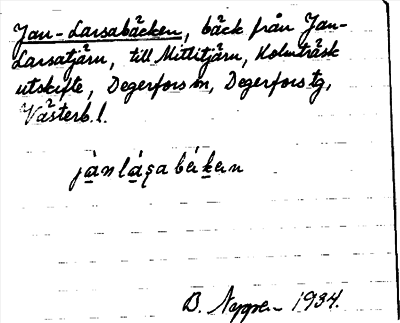 Jan-Larsabäcken, bäck från Jan-
Larsatjärn, till Mittitjärn, Holmträsk
utskifte, Degerfors sn, Degerfors tg,
Västerb. l.
jànlásabékan
B. 1934.